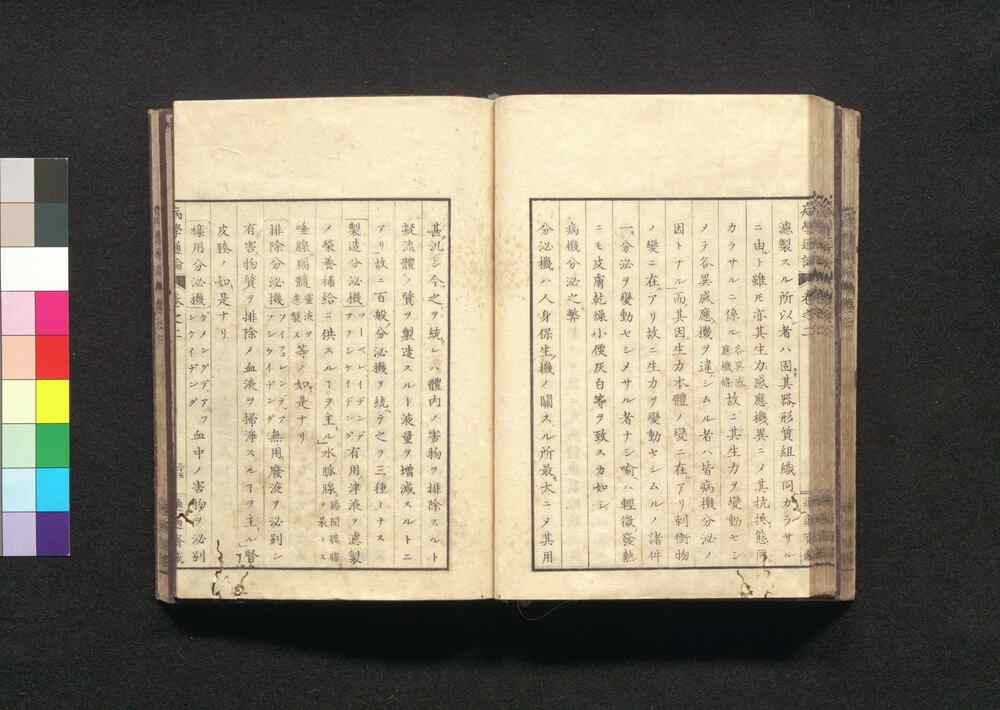 濾製スル所以ノ者ハ固ヨリ其器形質組織同カラサル
ニ由ト雖モ亦其生力感應機異ニメ其抗抵態同
カラサルニ係ル 故ニ其生力ヲ變動セシ
メテ各異感應機ヲ違ハシムル者ハ皆病機分泌ノ
因トナル而其因生力本體ノ變ニ在アリ刺衝物
ノ變ニ在アリ故ニ生力ヲ變動セシムルノ諸件
一モ分泌ヲ變動セシメサル者ナシ喩ハ輕微ノ寢熱
ニモ皮膚乾燥小便灰白等ヲ致スカ如シ
病機分泌之弊
分泌機ハ人身保生機ノ關スル所最大ニメ其用
甚汎シ今之ヲ統レハ體内ノ害物ヲ排除スルト
凝流體ノ質ヲ製造スルト液量ヲ增減スルトニ
アリ故ニ百般ノ分泌機ヲ統テ之ヲ三種トナス
製造分泌機 有用津液ヲ濾製
ノ榮養補給ニ供スルヿヲ主ル水脈腺
唾腺腸髓 等ノ如キ是ナリ
排除分泌機 無用廢液ヲ泌別シ
有害物質ヲ排除メ血液ヲ掃淨スルヿヲ主ル腎
皮膚ノ如キ是ナリ
穰用分泌機 血中ノ害物ヲ泌別
病學通論 卷之二